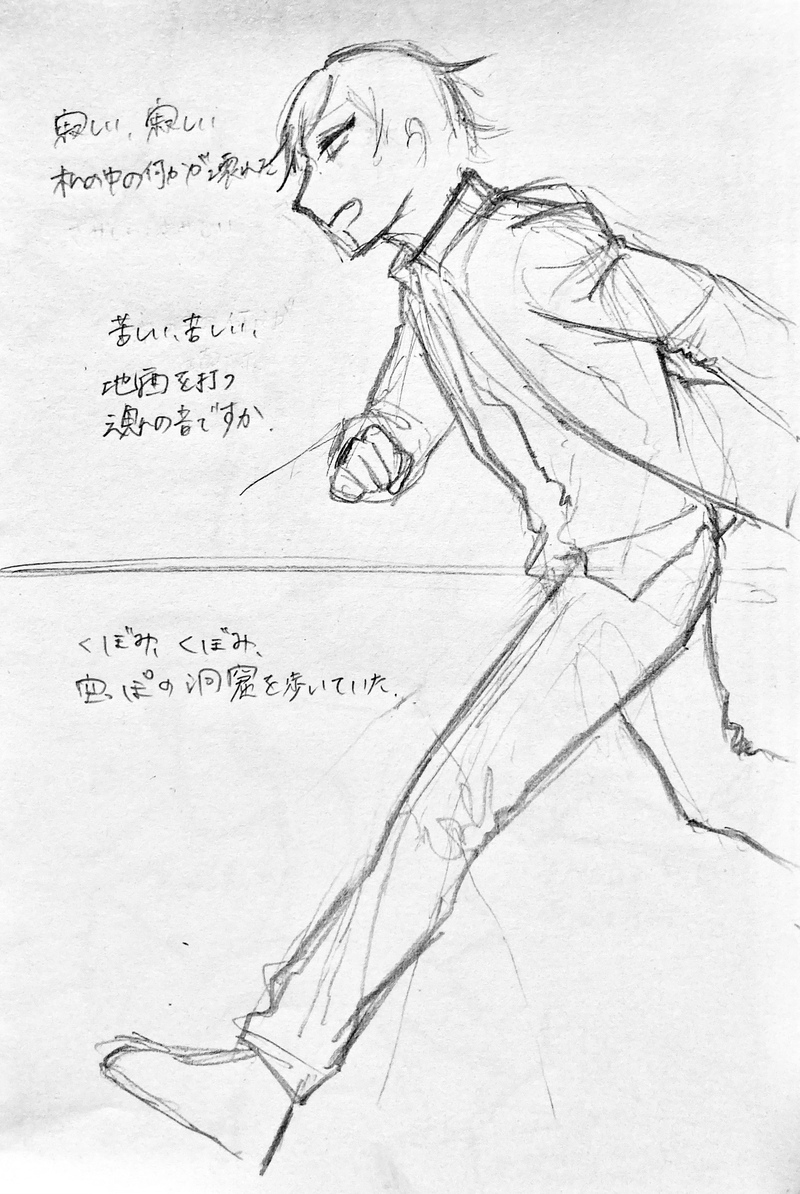 寂しい、寂しい
私の中の何かが壊れた
苦しい、苦しい、
地面を打つ
魂の音ですか.
くぼみ、くぼみ、
空っぽの洞窟を歩いていた.